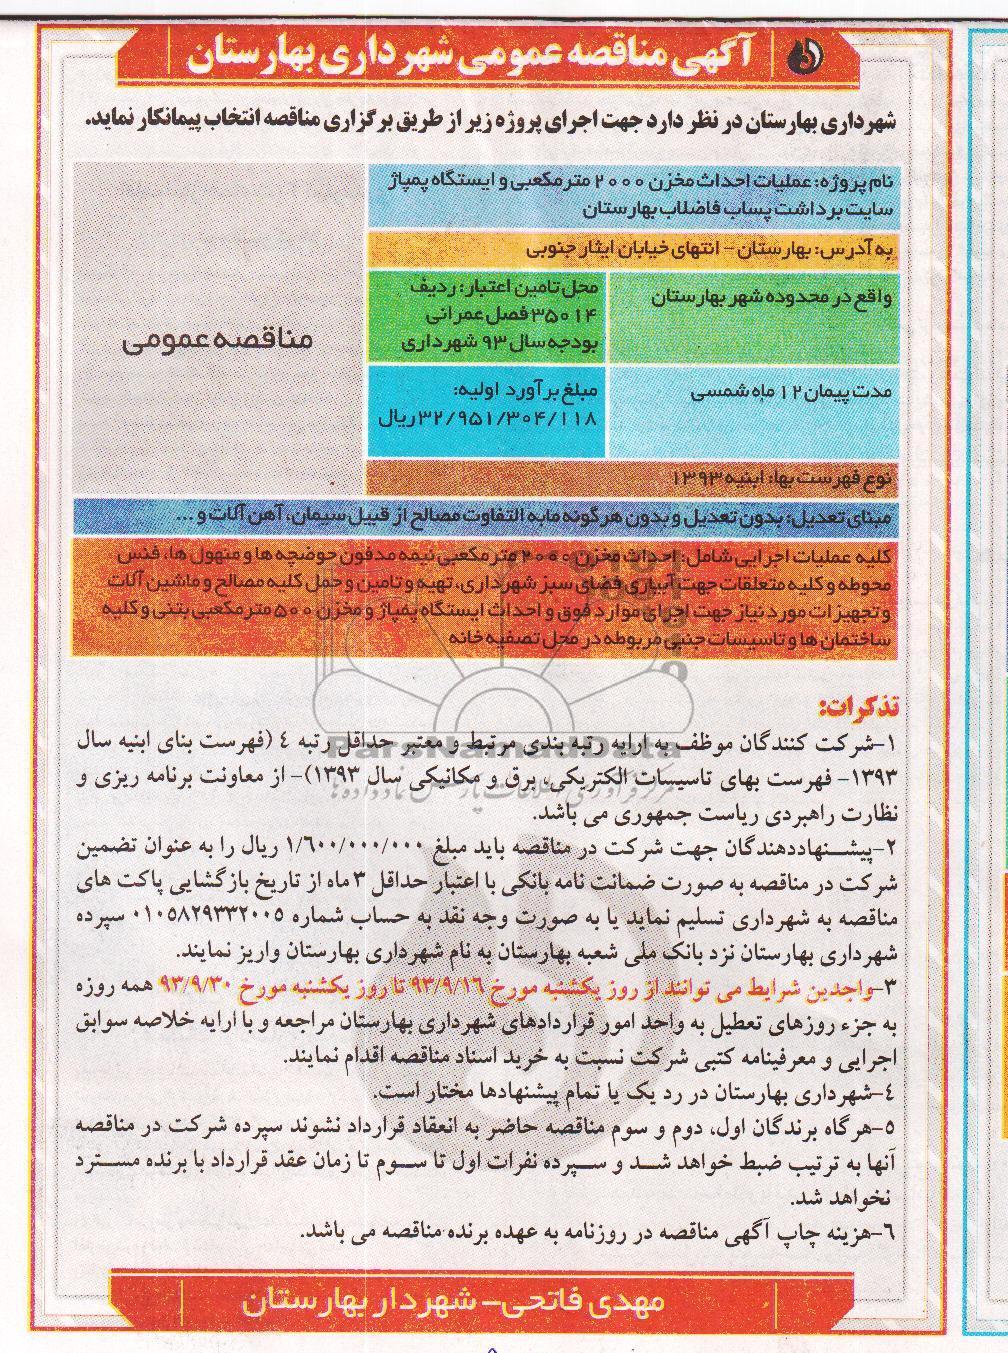 آگهی مناقصه عمومی شهرداری بهارستان
شهرداری بهارستان در نظر دارد جهت اجرای پروژه زیر از طریق برگزاری مناقصه انتخاب پیمانکار نماید.
نام پروژه: عملیات احداث مخزن ۲۰۰۰ مترمکعبی و ایستگاه پمپاژ
سایت برداشت پساب فاضلاب بهارستان
به آدرس: بهارستان - انتهای خیابان ایثار جنوبی
واقع در محدوده شهر بهارستان
محل تامین اعتبار: ردیف
۳۵۰۱۴ فصل عمرانی
بودجه سال ۹۳ شهرداری
مدت پیمان ۱۲ ماه شمسی
مبلغ برآورد اولیه:
۳۲/۹۵۱/۳۰۴/۱۱۸ ریال
نوع فهرست بها: ابنیه ۱۳۹۳
مناقصه عمومی
مبنای تعدیل: بدون تعدیل و بدون هرگونه مابه التفاوت مصالح از قبیل سیمان، آهن آلات و ...
کلیه عملیات اجرایی شامل: احداث مخزن ۲۰۰۰ مترمکعبی نیمه مدفون حوضچه ها و منهول ها، فنس
محوطه و کلیه متعلقات جهت آبیاری فضای سبز شهرداری، تهیه و تامین و حمل کلیه مصالح و ماشین آلات
و تجهیزات مورد نیاز جهت اجرای موارد فوق و احداث ایستگاه پمپاژ و مخزن ۵۰۰ مترمکعبی بتنی و کلیه
ساختمان ها و تاسیسات جنبی مربوطه در محل تصفیه خانه
تذکرات:
۱-شرکت کنندگان موظف به ارایه رتبه بندی مرتبط و معتبر حداقل رتبه ٤ (فهرست بنای ابنیه سال
۱۳۹۳- فهرست بهای تاسیسات الکتریکی، برق و مکانیکی سال ۱۳۹۳)- از معاونت برنامه ریزی و
نظارت راهبردی ریاست جمهوری می باشد.
۲-پیشنهاددهندگان جهت شرکت در مناقصه باید مبلغ ۱/٦۰۰/۰۰۰/۰۰۰ ریال را به عنوان تضمین
شرکت در مناقصه به صورت ضمانت نامه بانکی با اعتبار حداقل ۳ ماه از تاریخ بازگشایی پاکت های
مناقصه به شهرداری تسلیم نماید یا به صورت وجه نقد به حساب شماره ۰۱۰۵۸۲۹۳۳۲۰۰۵ سپرده
شهرداری بهارستان نزد بانک ملی شعبه بهارستان به نام شهرداری بهارستان واریز نمایند.
۳-واجدین شرایط می توانند از روز یکشنبه مورخ ۹۳/۹/۱٦ تا روز یکشنبه مورخ ۹۳/۹/۳۰ همه روزه
به جزء روزهای تعطیل به واحد امور قراردادهای شهرداری بهارستان مراجعه و با ارایه خلاصه سوابق
اجرایی و معرفینامه کتبی شرکت نسبت به خرید اسناد مناقصه اقدام نمایند.
٤-شهرداری بهارستان در رد یک یا تمام پیشنهادها مختار است.
۵-هرگاه برندگان اول، دوم و سوم مناقصه حاضر به انعقاد قرارداد نشوند سپرده شرکت در مناقصه
آنها به ترتیب ضبط خواهد شد و سپرده نفرات اول تا سوم تا زمان عقد قرارداد با برنده مسترد
نخواهد شد.
٦-هزینه چاپ آگهی مناقصه در روزنامه به عهده برنده مناقصه می باشد.
مهدی فاتحی- شهردار بهارستان
ParsNamadData